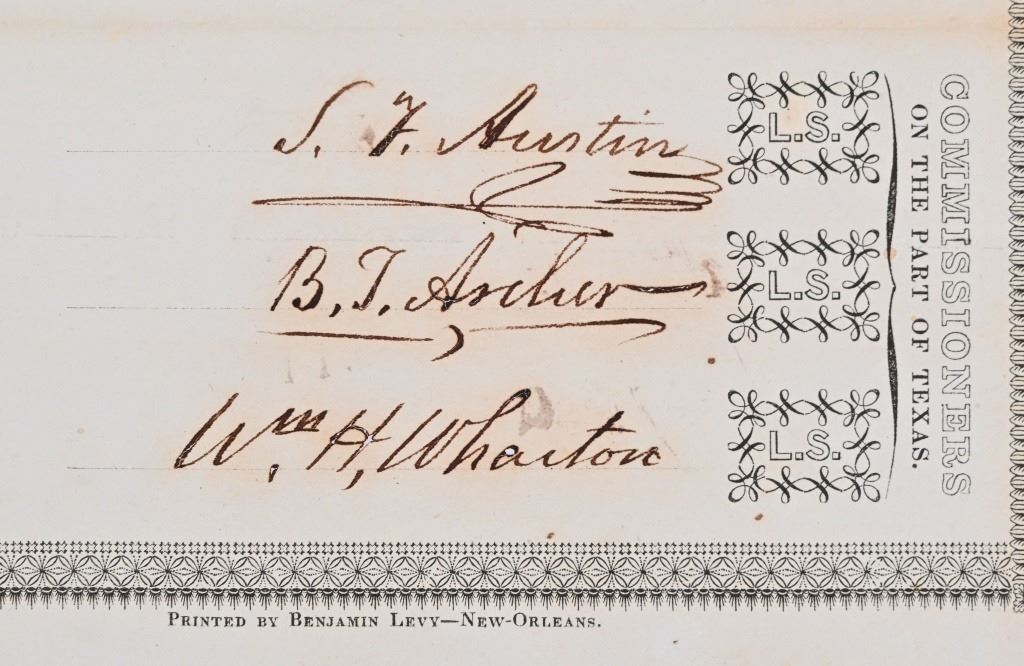 S. F. Austin L.S.
B. T. Archer L.S.
Wm. H. Wharton L.S.
COMMISSIONERS
ON THE PART OF TEXAS.
PRINTED BY BENJAMIN LEVY—NEW-ORLEANS.